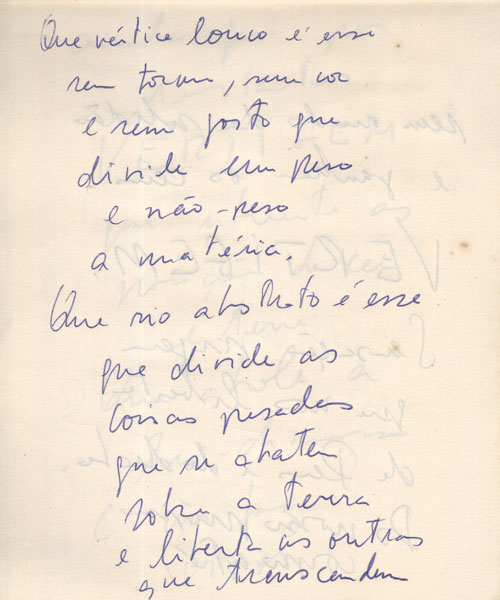 Que vértice louco é esse
sem forma, sem cor
e sem gosto que
divide em peso
e não-peso
a matéria.
Que rio abstrato é esse
que divide as
coisas pesadas
que se abatem
sobre a terra
e liberta as outras
que transcendem